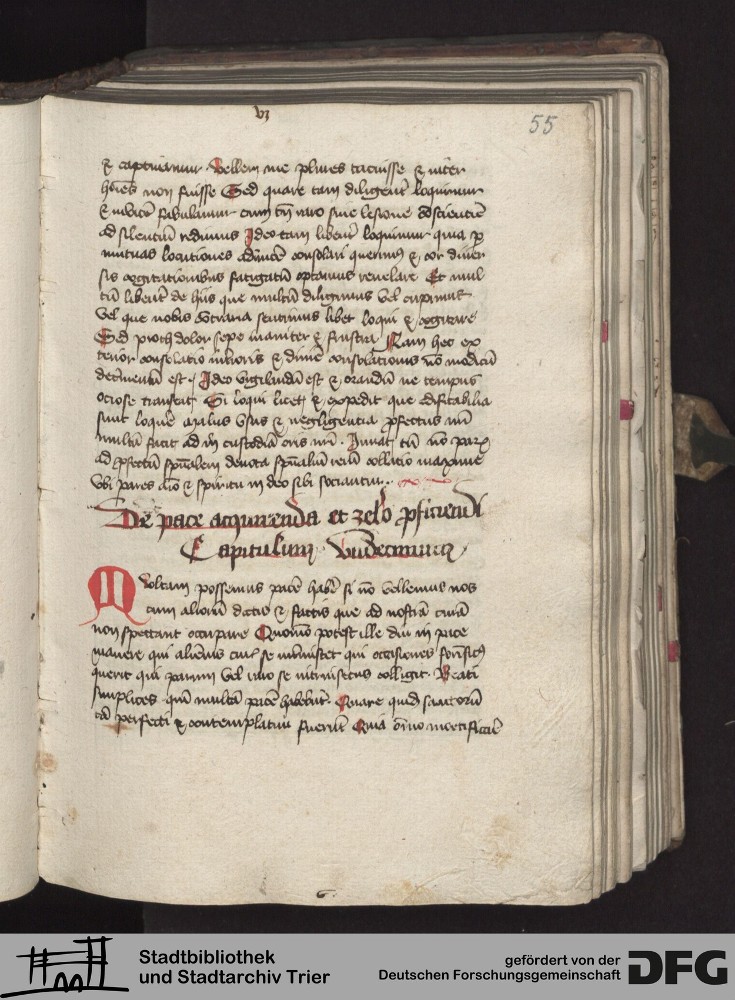 vi
55
& captivamur Vellem me plures tacuisse & inter
hoīes non fuisse Sed quare tam diligent̄ loquimur
& invicē fabulamur cum tn̄ raro sine lesione ꝯscientie
ad silentiū redimus Ideo tam libent̄ loquimur quia ꝑ
mutuas locutiones adinvicē consolari querimꝰ & cor diver
sis cogitationibus fatigatū optamus relevare Et mul
tū libent̄ de hiis que multū diligimus vel cupimus
vel que nobis ꝯtraria sentimus libet loqui & cogitare
Sed proch dolor sepe inaniter & frustra Nam hec ex
terior consolatio interioris & divine consolationis nō modicū
detrimentū est Ideo vigilandū est & orandū ne tempus
ociose transeat Si loqui licet & expedit que edificabilia
sunt loquere Malus usus & negligentia ꝓfectus nr̄i
multū facit ad in custodiā oris nr̄i Iuvat tn̄ nō parū
ad ꝓfectū sp̄ualem devota sp̄ualiū rerū collatio maxime
ubi pares aīo & spiritu in deo sibi sociantur
De pace acquirenda et zelo ꝓficiendi
Capitulum Undecimum
Multam possemus pacē haberē si nō vellemus nos
cum aliorū dictis & factis que ad nostrā curā
non spectant occupare Quomō potest ille diu in pace
manere qui alienis curis se intermiscet qui occasiones forīsecꝰ
querit qui parum vel raro se intrinsecus colligit Beati
simplices qm̄ multā pacē habebūt Quare quidā sanctorū
tā perfecti & contemplativi fuerūt Quia oīno mortificare
6
Stadtbibliothek
und Stadtarchiv Trier
gefördert von der
Deutschen Forschungsgemeinschaft
DFG